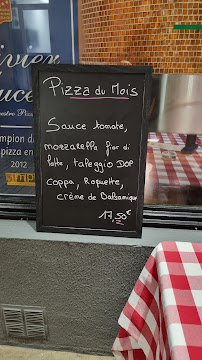 Pizza du Mois
Sauce tomate,
mozzarella fior di
latte, taleggio DOP
Coppa, Roquette,
crème de Balsamique
17,50€
2012